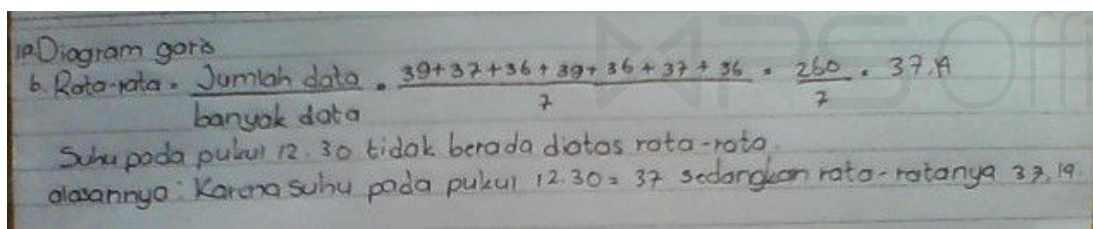 1a. Diagram garis
b. Rata-rata = Jumlah data = 39+37+36+39+36+37+36 = 260 = 37,19
banyak data 7 7
Suhu pada pukul 12.30 tidak berada diatas rata-rata.
alasannya: Karena suhu pada pukul 12.30 = 37 sedangkan rata-ratanya 37,19.